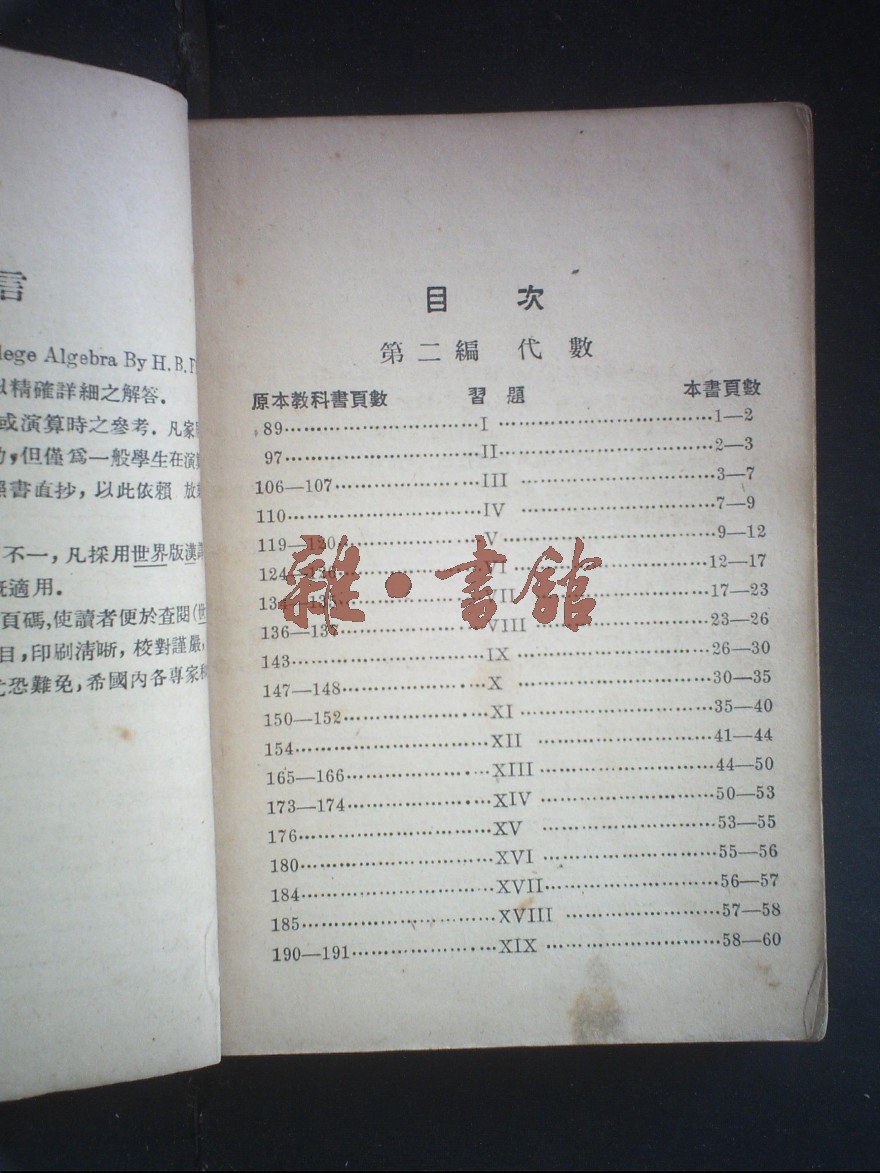 言
lege Algebra By H. B. F
以精確詳細之解答.
或演算時之參考. 凡家
力,但僅爲一般學生在演
照書直抄, 以此依賴 放
不一, 凡採用世界版漢譯
旣適用.
頁碼,使讀者便於查閱(世
目,印刷淸晰, 校對謹嚴,
尤恐難免,希國內各專家
目 次
第二編 代數
原本教科書頁數 習題 本書頁數
89 I 1—2
97 II 2—3
106—107 III 3—7
110 IV 7—9
119—120 V 9—12
124—126 VI 12—17
VII 17—23
136—137 VIII 23—26
143 IX 26—30
147—148 X 30—35
150—152 XI 35—40
154 XII 41—44
165—166 XIII 44—50
173—174 XIV 50—53
176 XV 53—55
180 XVI 55—56
184 XVII 56—57
185 XVIII 57—58
190—191 XIX 58—60
雜·書館